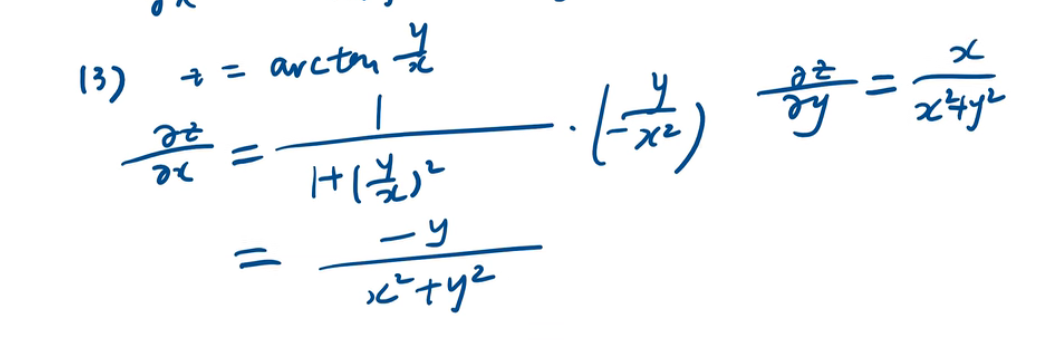 (3) z = arctan y/x
∂z/∂x = 1/(1+(y/x)²) · (-y/x²) ∂z/∂y = x/(x²+y²)
= -y/(x²+y²)